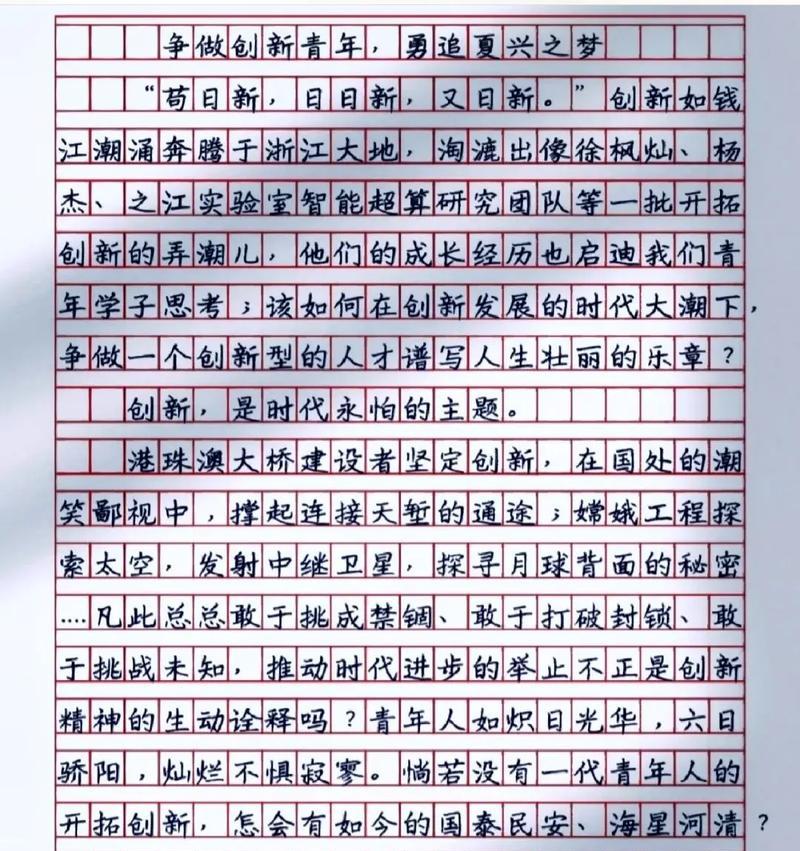 争做创新青年，勇追夏兴之梦
“苟日新，日日新，又日新。”创新如钱
江潮涌奔腾于浙江大地，淘漉出像徐枫灿、杨
杰、之江实验室智能超算研究团队等一批开拓
创新的弄潮儿，他们的成长经历也启迪我们青
年学子思考；该如何在创新发展的时代大潮下，
争做一个创新型的人才谱写人生壮丽的乐章？
创新，是时代永怕的主题。
港珠澳大桥建设者坚定创新，在国处的潮
笑鄙视中，撑起连接天堑的通途；嫦娥工程探
索太空，发射中继卫星，探寻月球背面的秘密
....凡此总总敢于挑成禁锢、敢于打破封锁、敢
于挑战未知，推动时代进步的举止不正是创新
精神的生动诠释吗？青年人如炽日光华，六日
骄阳，灿烂不惧寂寥。惝若没有一代青年人的
开拓创新，怎会有如今的国泰民安、海星河清？